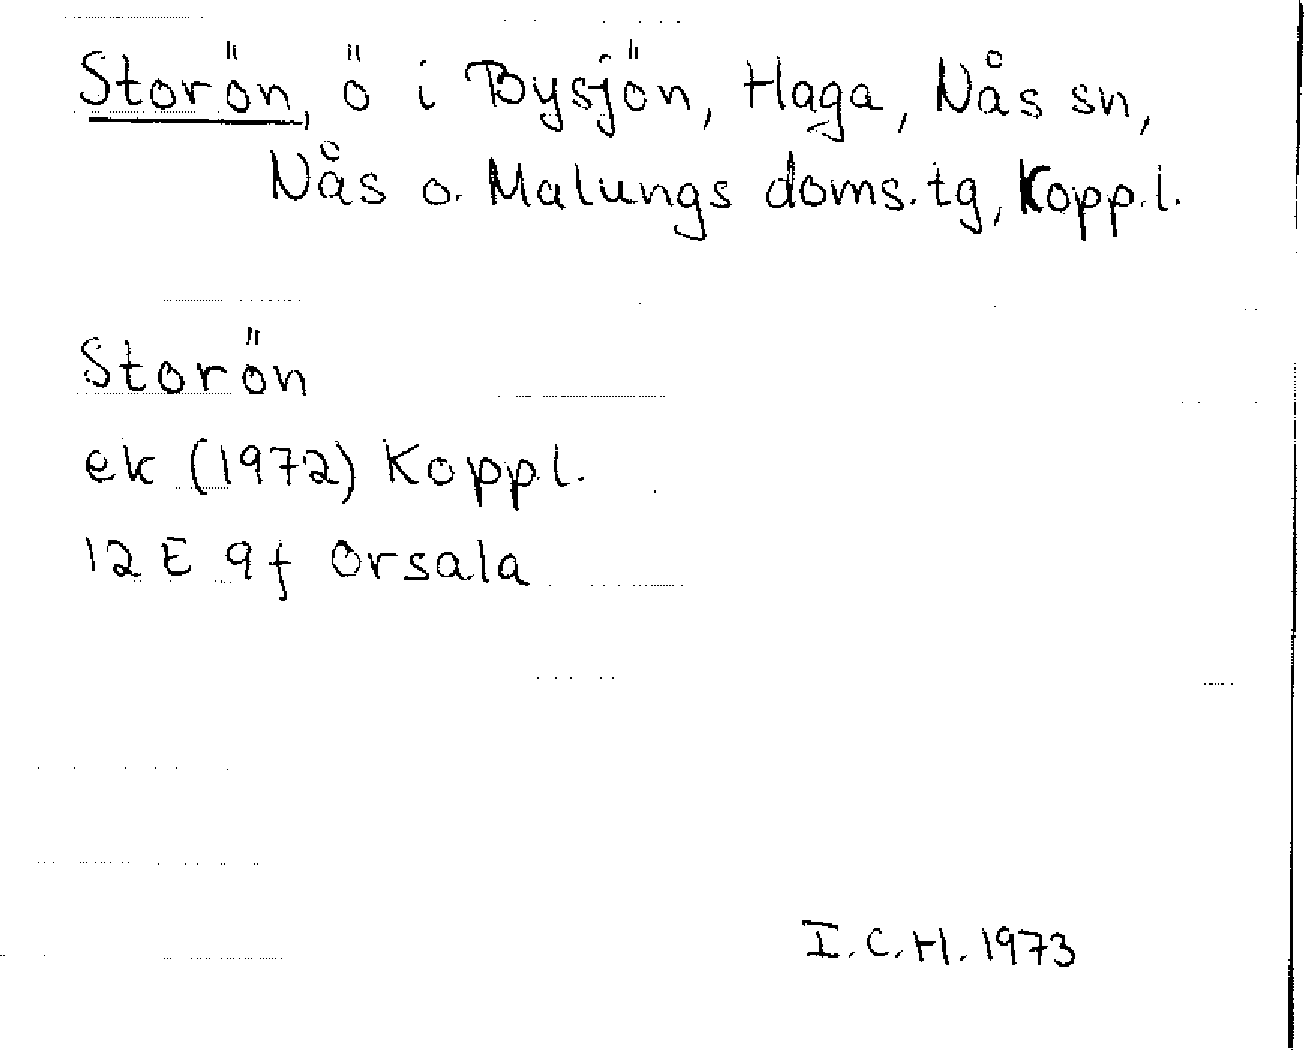 Storön, ö i Bysjön, Haga, Nås sn,
Nås o. Malungs doms.tg, Kopp.l.
Storön
ek (1972) Koppl.
12 E 9f Orsala
I.C.H. 1973